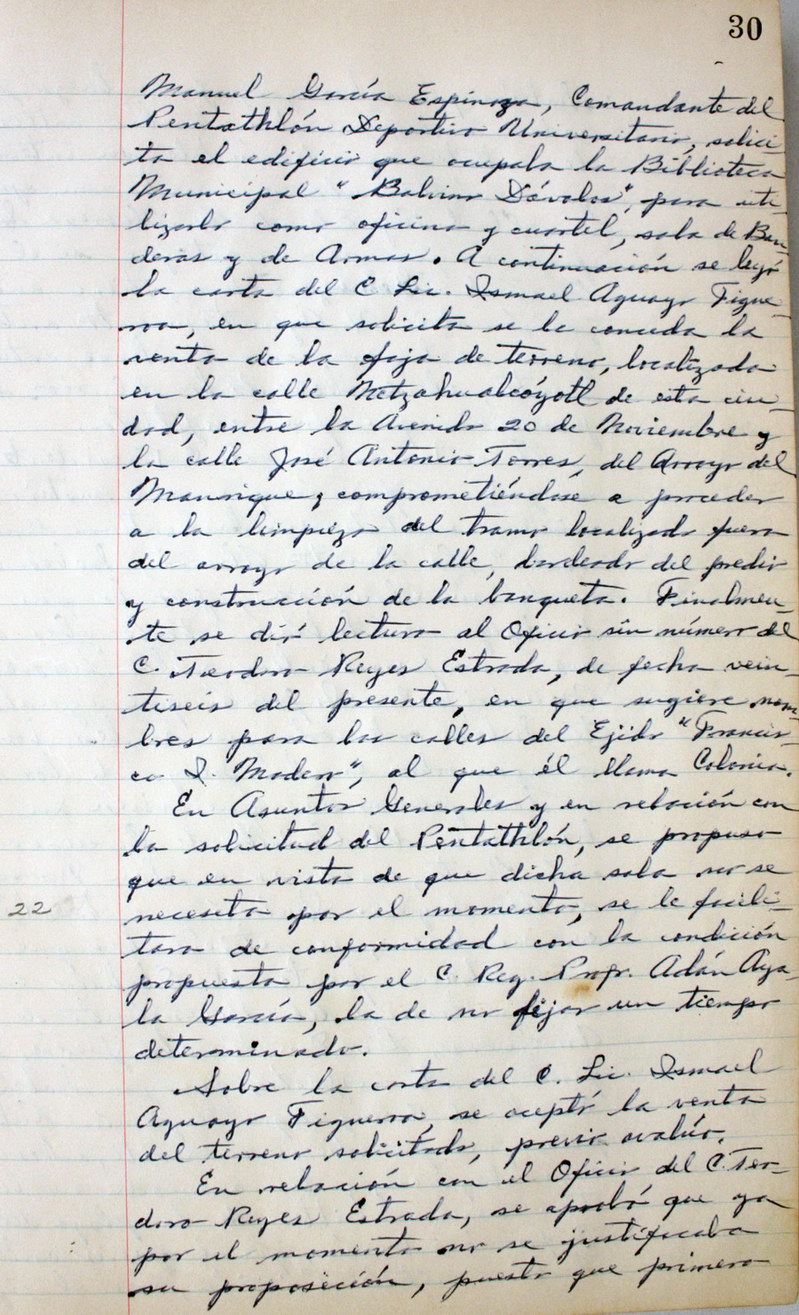 30
Manuel García Espinoza, Comandante del
Pentathlón Deportivo Universitario, solici-
ta el edificio que ocupaba la Biblioteca
Municipal "Balvino Dávalos", para uti-
lizarlo como oficina y cuartel, sala de Ban-
deras y de Armas. A continuación se leyó
la carta del C. Lic. Ismael Aguayo Figue-
roa, en que solicita se le conceda la
venta de la faja de terreno, localizada
en la calle Netzahualcóyotl de esta ciu-
dad, entre la Avenida 20 de Noviembre y
la calle José Antonio Torres, del Arroyo del
Manrique, comprometiéndose a proceder
a la limpieza del tramo localizado fuera
del arroyo de la calle, bardeado del predio
y construcción de la banqueta. Finalmen-
te se dió lectura al Oficio sin número del
C. Teodoro Reyes Estrada, de fecha vein-
tiseis del presente, en que sugiere nom-
bres para las calles del Ejido "Francis-
co I. Madero", al que él llama Colonia.
En Asuntos Generales y en relación con
la solicitud del Pentathlón, se propuso
que en vista de que dicha sala no se
22
necesita por el momento, se le facili-
tara de conformidad con la condición
propuesta por el C. Reg. Profr. Adán Aya-
la García, la de no fijar un tiempo
determinado.
Sobre la carta del C. Lic. Ismael
Aguayo Figueroa, se aceptó la venta
del terreno solicitado, previo avalúo.
En relación con el Oficio del C. Teo-
doro Reyes Estrada, se aprobó que ya
por el momento no se justificaba
su proposición, puesto que primero